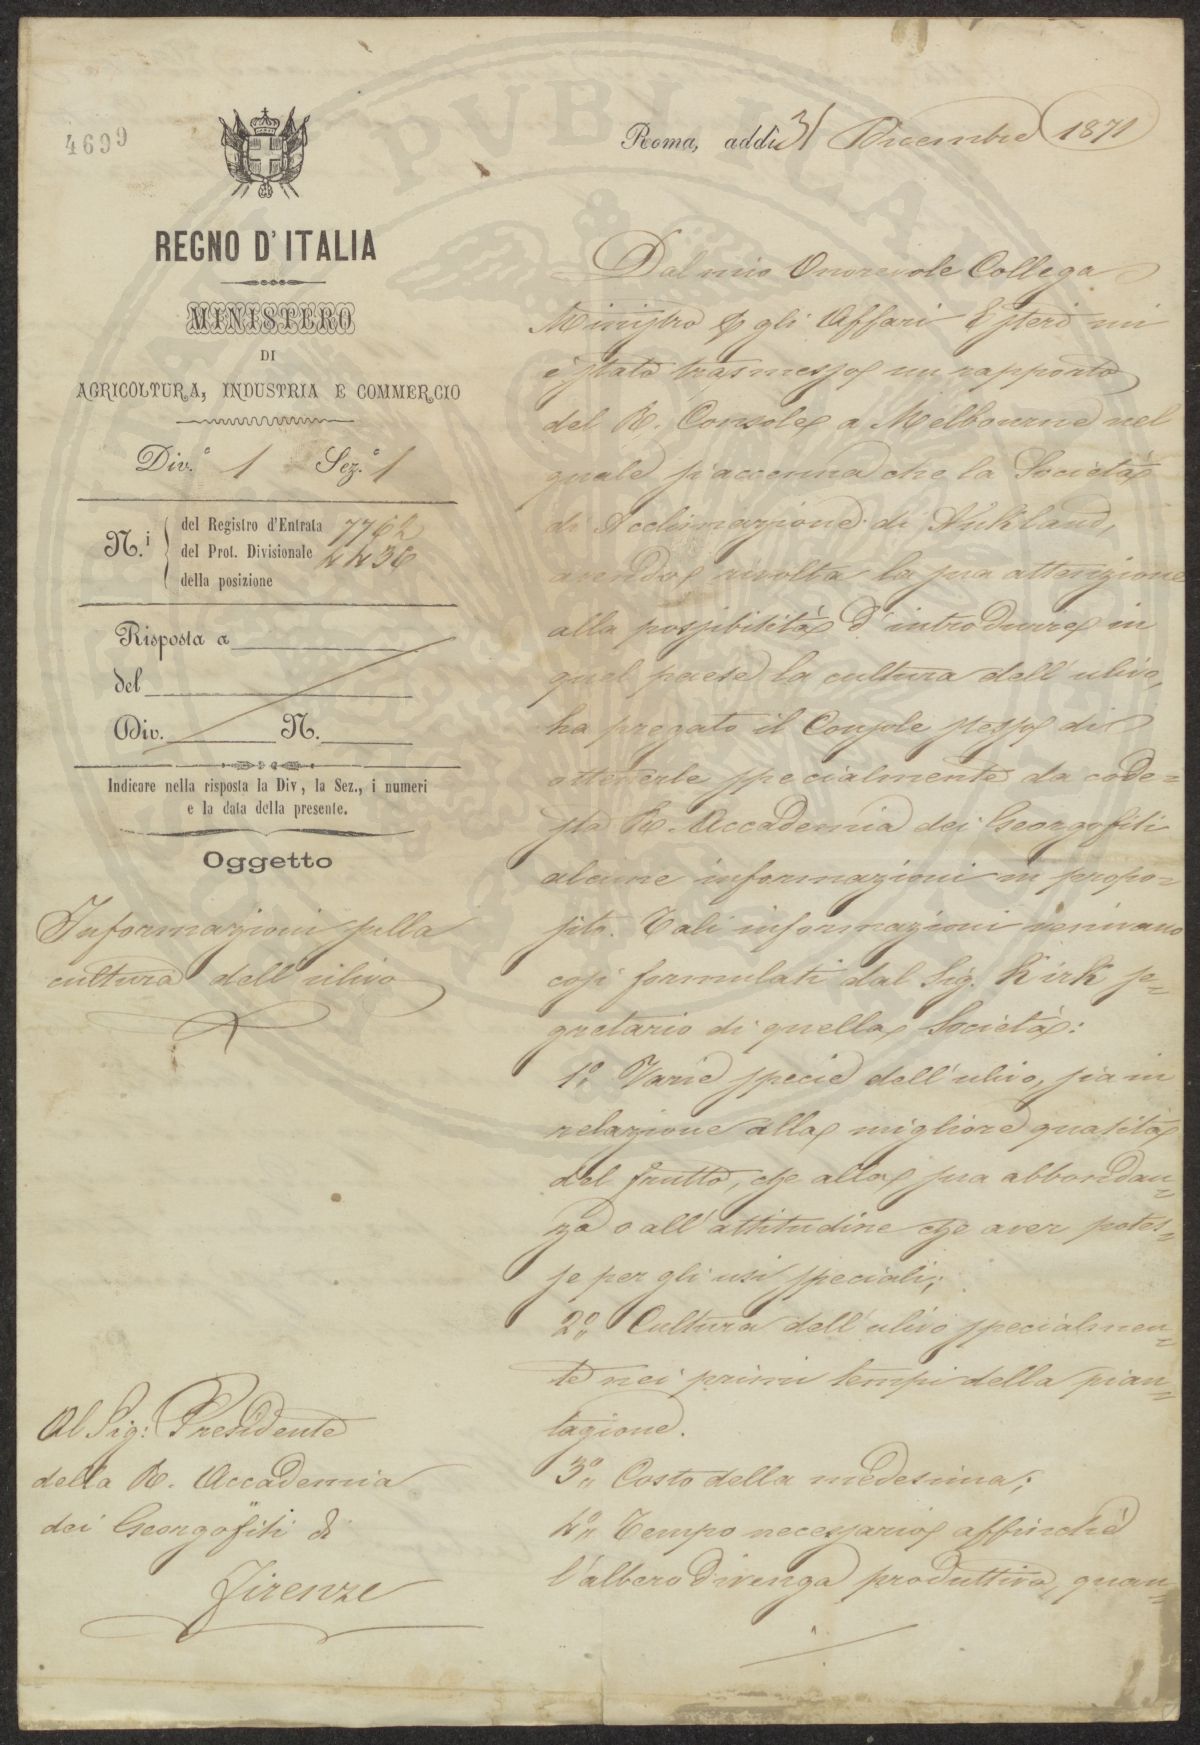 4699
REGNO D'ITALIA
MINISTERO
DI
AGRICOLTURA, INDUSTRIA E COMMERCIO
Div.e 1 Sez.e 1
N.i
del Registro d'Entrata 7762
del Prot. Divisionale 4436
della posizione
Risposta a
del
Div. N.
Indicare nella risposta la Div, la Sez., i numeri
e la data della presente.
Oggetto
Informazioni sulla
cultura dell'ulivo
Al Sig: Presidente
della R. Accademia
dei Georgofili di
Firenze
Roma, addì 31 Dicembre 1871
Dal mio Onorevole Collega
Ministro p gli Affari Esteri mi
è stato trasmesso un rapporto
del R. Console a Melbourne nel
quale s'accenna che la Società
di Acclimazione di Aukland,
avendo rivolta la sua attenzione
alla possibilità d'introdurre in
quel paese la cultura dell'ulivo,
ha pregato il Console stesso di
ottenerle specialmente da code=
sta R. Accademia dei Georgofili
alcune informazioni in propo=
sito. Tali informazioni venivano
così formulati dal Sig. Kirk se=
gretario di quella Società:
1.o Varie specie dell'ulivo, sia in
relazione alla migliore qualità
del frutto, che alla sua abbondan=
za o all'attitudine che aver potes=
se per gli usi speciali;
2.o Cultura dell'ulivo specialmen=
te nei primi tempi della pian=
tagione.
3.o Costo della medesima;
4.o Tempo necessario affinché
l'albero divenga produttivo, quan=